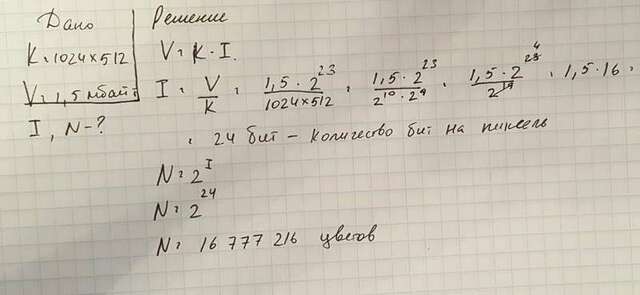 Дано
Решение
K = 1024×512
V = K · I.
V = 1,5 мбайт
I = V/K = 1,5 · 2^23 / 1024×512 = 1,5 · 2^23 / 2^10 · 2^9 = 1,5 · 2^23 4 / 2^19 = 1,5 · 16 =
I, N - ?
= 24 бит – количество бит на пиксель
N = 2^I
N = 2^24
N = 16 777 216 цветов